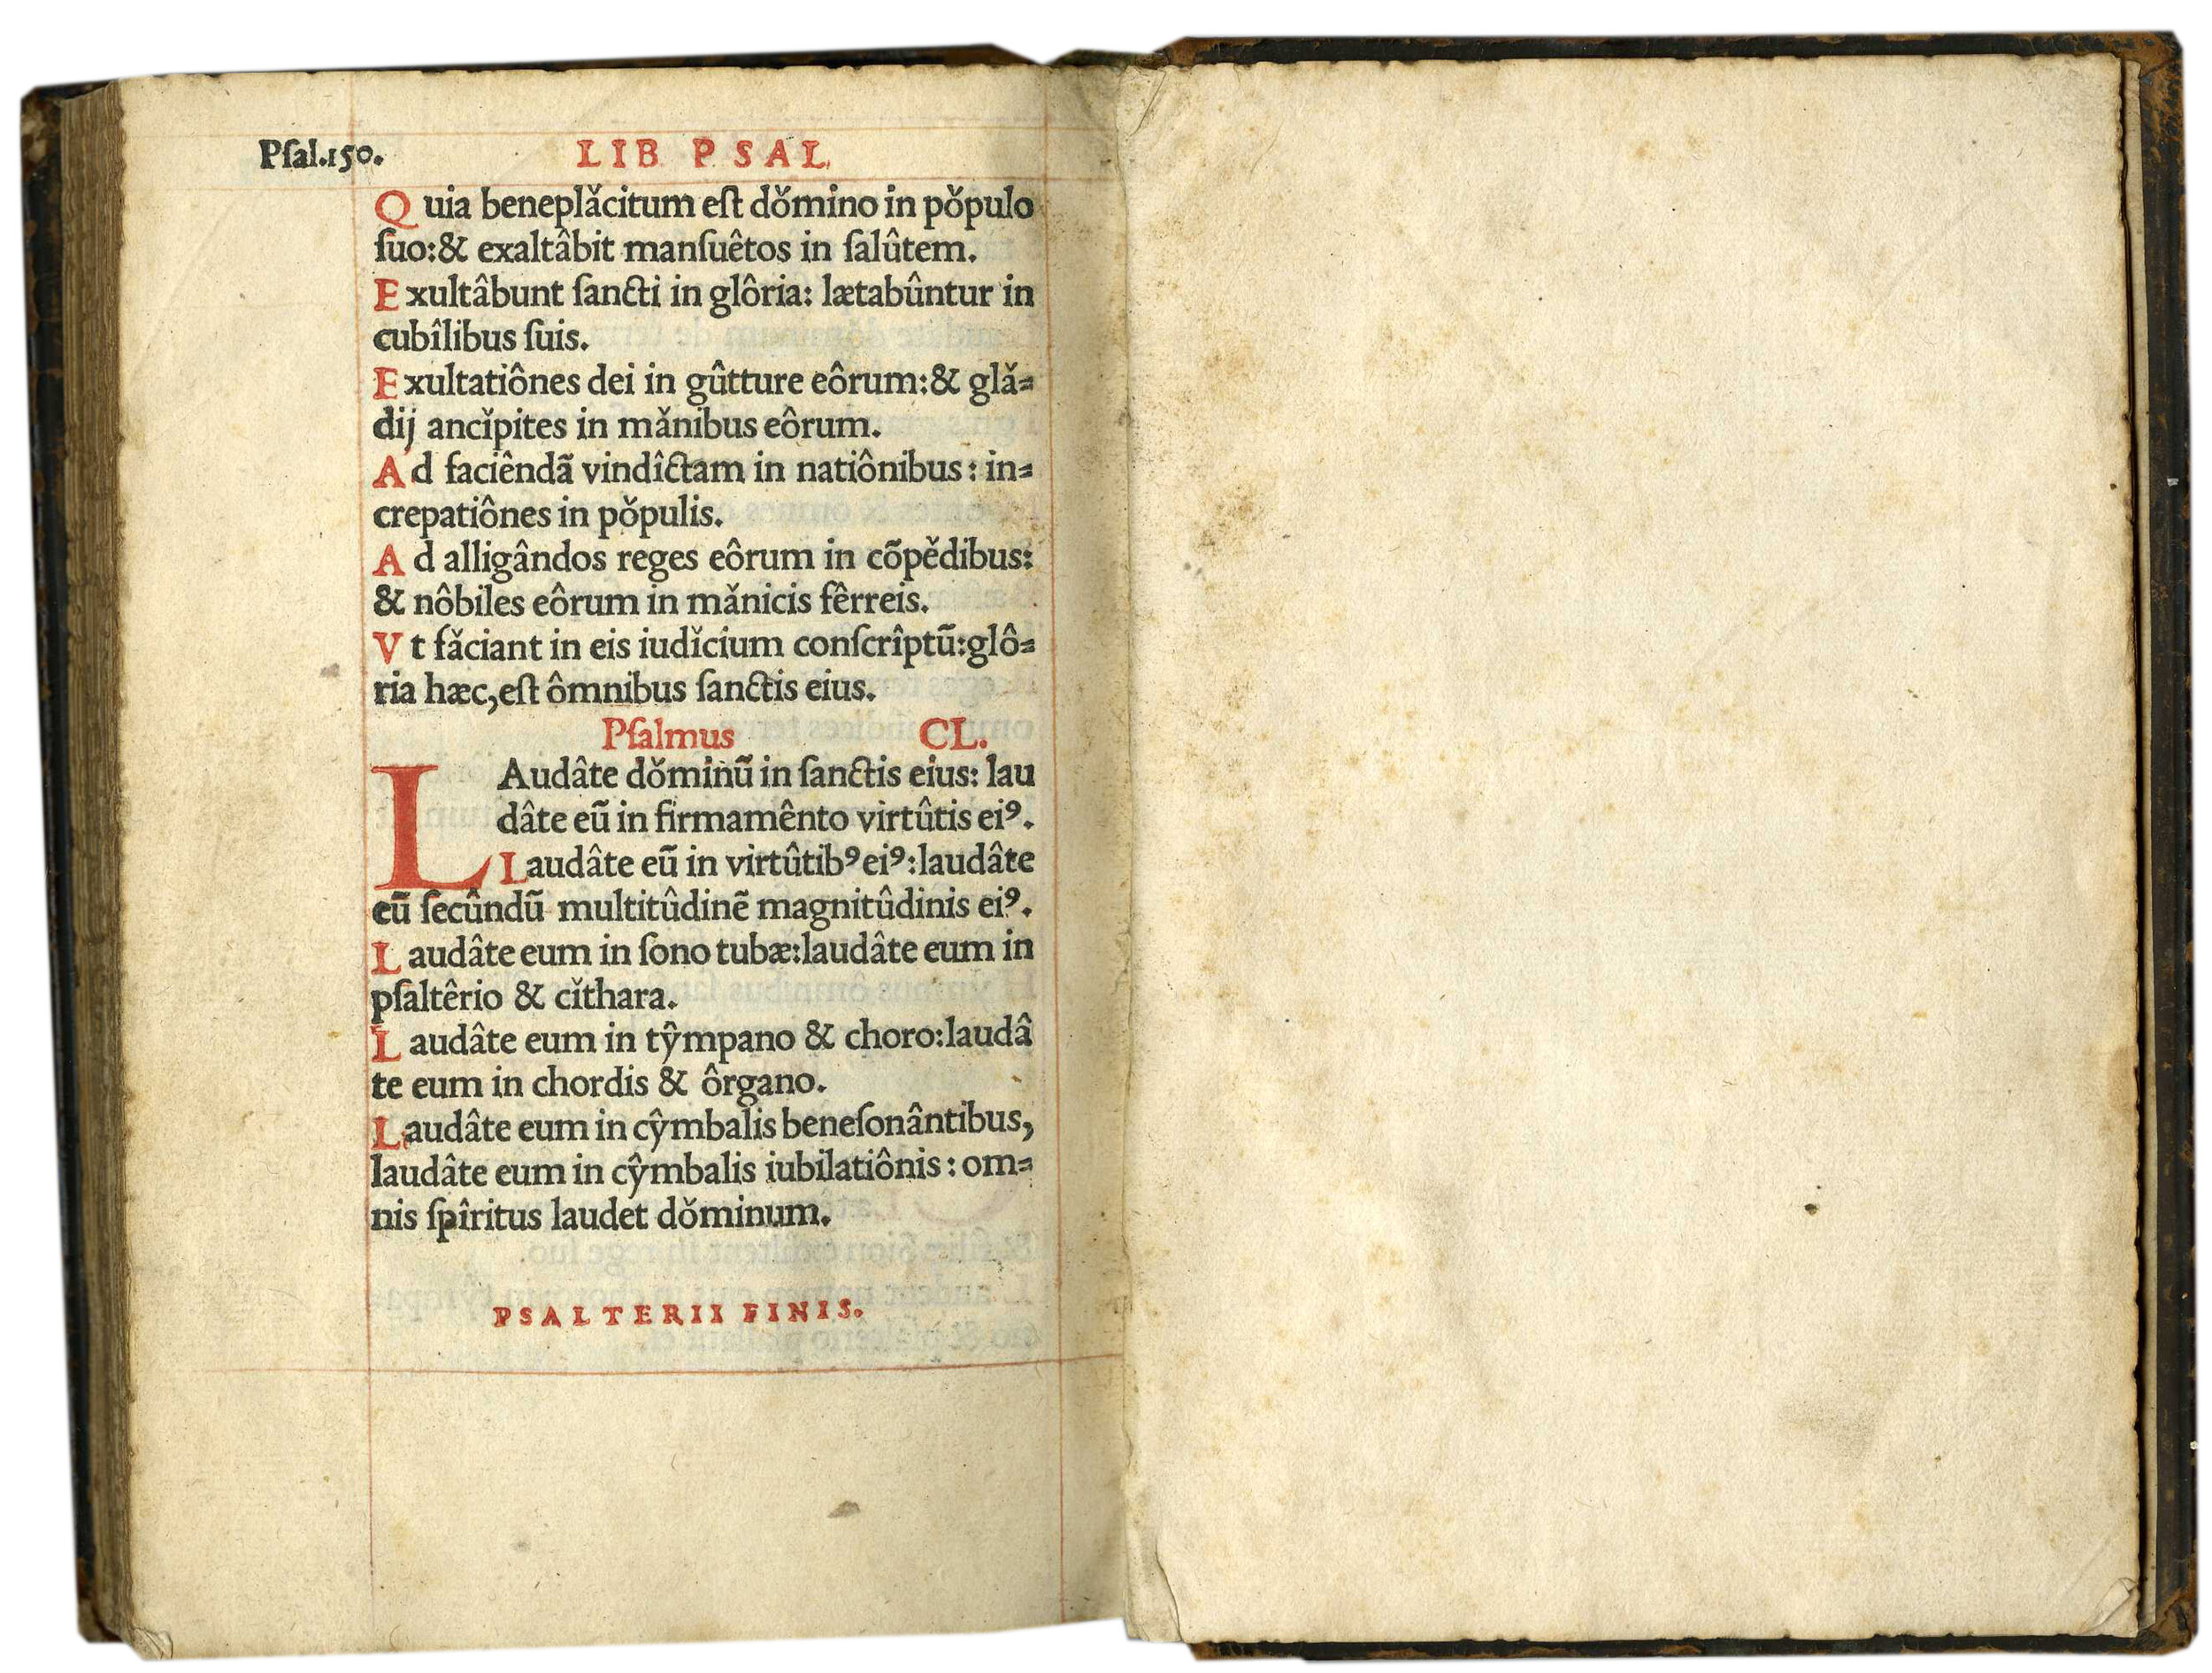 Pſal.150. LIB PSAL
Quia beneplǎcitum eſt dǒmino in pǒpulo
ſuo:& exaltâbit manſuêtos in ſalûtem.
Exultâbunt ſancti in glôria: lætabûntur in
cubîlibus ſuis.
Exultatiônes dei in gûtture eôrum:& glǎ=
dij ancǐpites in mǎnibus eôrum.
Ad faciêndã vindîctam in natiônibus: in=
crepatiônes in pǒpulis.
Ad alligândos reges eôrum in cõpědibus:
& nôbiles eôrum in mǎnicis fêrreis.
Vt fǎciant in eis iudǐcium conſcrîptũ:glô=
ria hæc,eſt ômnibus ſanctis eius.
Pſalmus CL.
LAudâte dǒminũ in ſanctis eius: lau
dâte eũ in firmamênto virtûtis eiꝰ.
Laudâte eũ in virtûtibꝰ eiꝰ:laudâte
eũ ſecûndũ multitûdinẽ magnitûdinis eiꝰ.
Laudâte eum in ſono tubæ:laudâte eum in
pſaltêrio & cǐthara.
Laudâte eum in tŷmpano & choro:laudâ
te eum in chordis & ôrgano.
Laudâte eum in cŷmbalis beneſonântibus,
laudâte eum in cŷmbalis iubilatiônis: om=
nis ſpîritus laudet dǒminum.
PSALTERII FINIS.